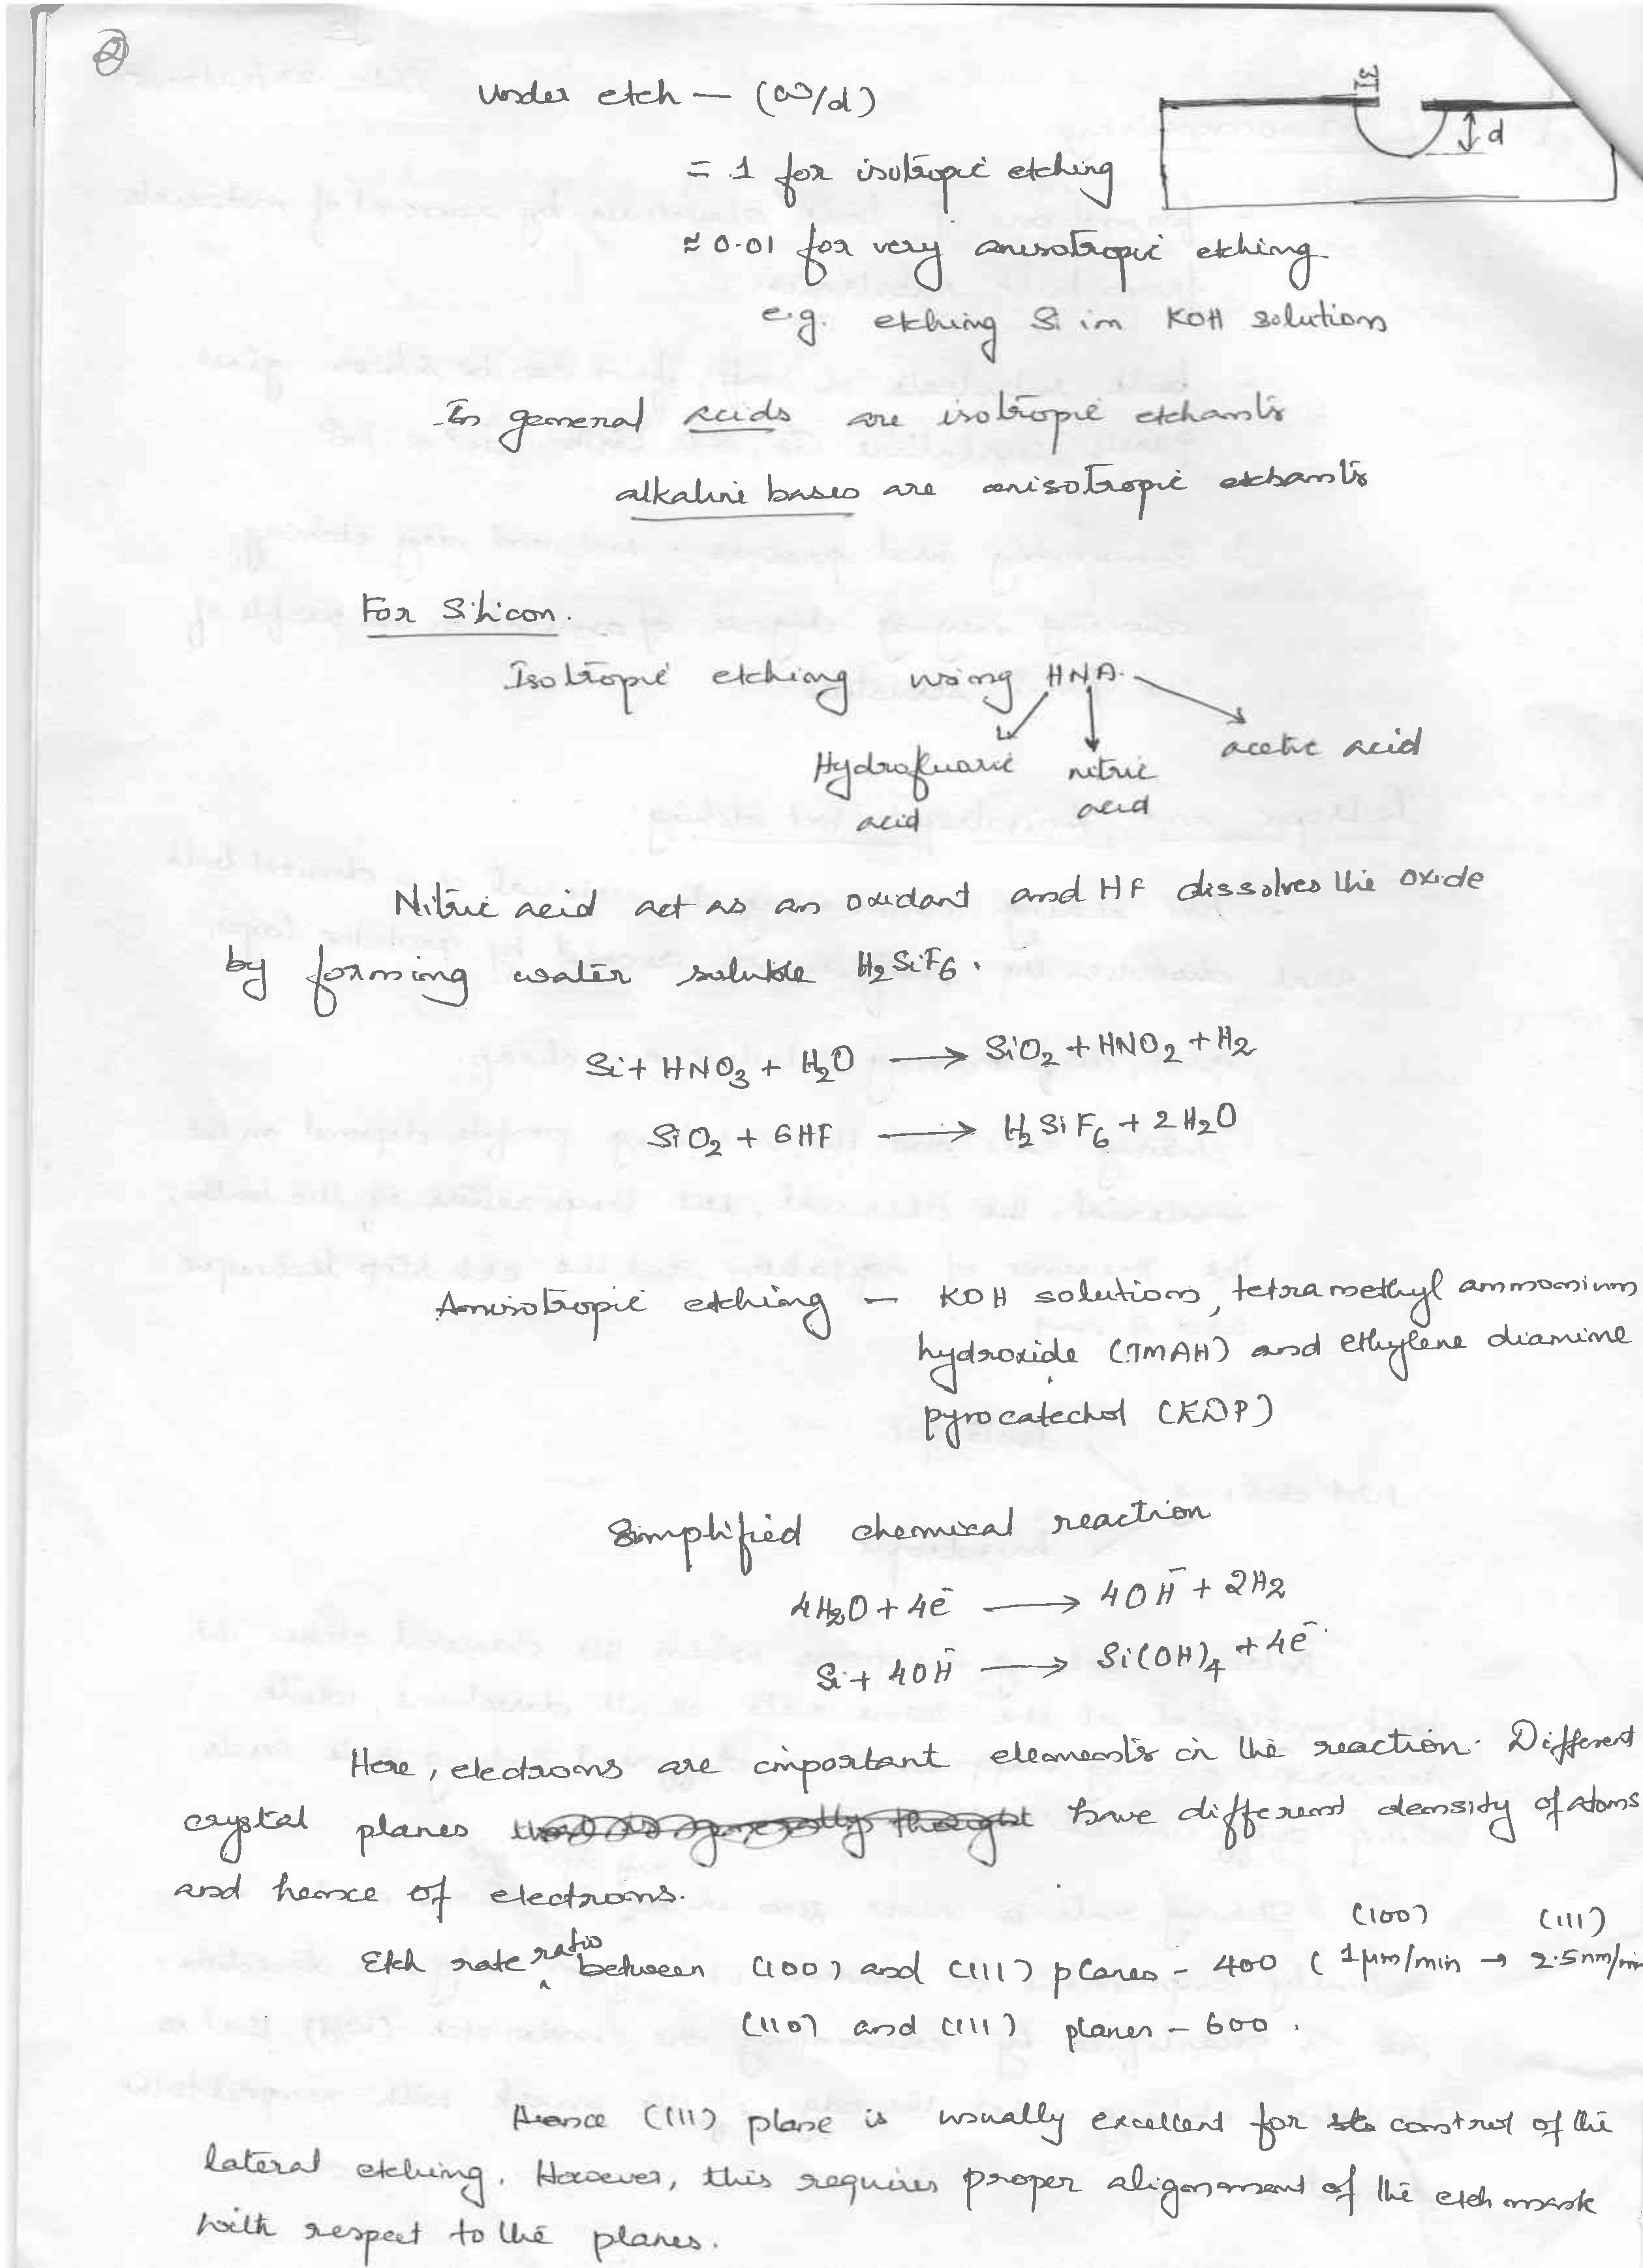 2
Under etch — (ω/d)
ω
d
= 1 for isotropic etching
≈ 0.01 for very anisotropic etching
e.g. etching Si in KOH solution
In general acids are isotropic etchants
alkaline bases are anisotropic etchants
For Silicon.
Isotropic etching using HNA.
Hydrofluoric acid
nitric acid
acetic acid
Nitric acid act as an oxidant and HF dissolves the oxide
by forming water soluble H₂SiF₆.
Si + HNO₃ + H₂O ⟶ SiO₂ + HNO₂ + H₂
SiO₂ + 6HF ⟶ H₂SiF₆ + 2H₂O
Anisotropic etching — KOH solution, tetramethyl ammonium
hydroxide (TMAH) and ethylene diamine
pyrocatechol (EDP)
Simplified chemical reaction
4H₂O + 4e⁻ ⟶ 4OH⁻ + 2H₂
Si + 4OH⁻ ⟶ Si(OH)₄ + 4e⁻
Here, electrons are important elements in the reaction. Different
crystal planes have different density of atoms
and hence of electrons.
(100) (111)
Etch rate ratio between (100) and (111) planes - 400 (1μm/min → 2.5nm/min
(110) and (111) planes - 600.
Hence (111) plane is usually excellent for control of the
lateral etching. However, this requires proper alignment of the etch mask
with respect to the planes.